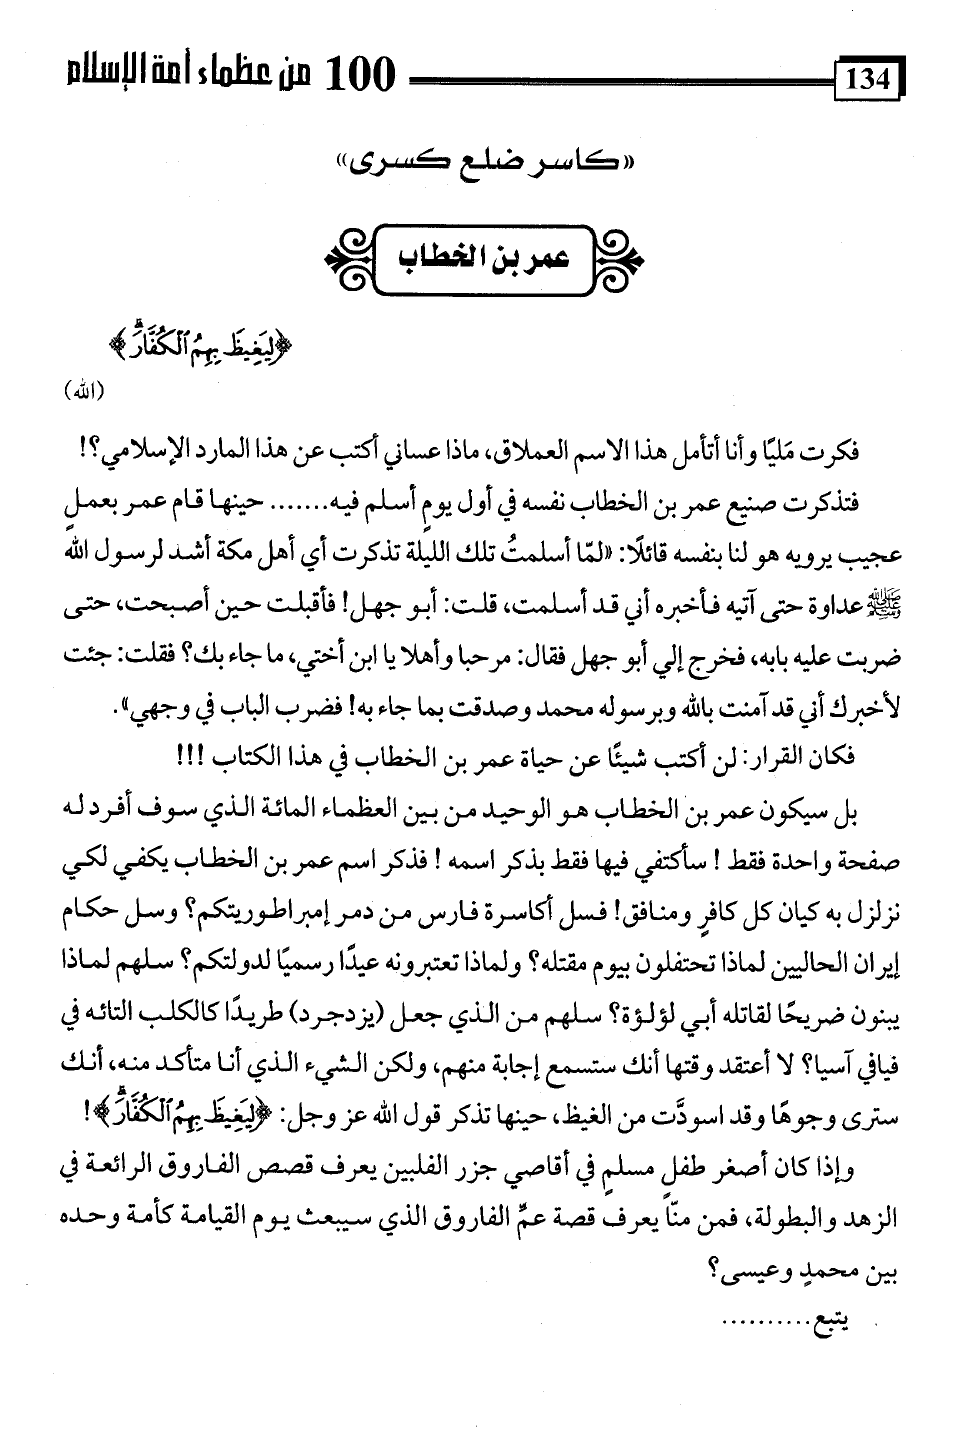 134
100 من عظماء أمة الإسلام
«كاسر ضلع كسرى»
عمر بن الخطاب
﴿لِيَغِيظَ بِهِمُ ٱلْكُفَّارَ ۗ﴾
(الله)
فكرت مَليًا وأنا أتأمل هذا الاسم العملاق، ماذا عساني أكتب عن هذا المارد الإسلامي؟!
فتذكرت صنيع عمر بن الخطاب نفسه في أول يومٍ أسلم فيه....... حينها قام عمر بعملٍ
عجيب يرويه هو لنا بنفسه قائلًا: «لمّا أسلمتُ تلك الليلة تذكرت أي أهل مكة أشد لرسول الله
ﷺ عداوة حتى آتيه فأخبره أني قد أسلمت، قلت: أبو جهل! فأقبلت حين أصبحت، حتى
ضربت عليه بابه، فخرج إلي أبو جهل فقال: مرحبا وأهلا يا ابن أختي، ما جاء بك؟ فقلت: جئت
لأخبرك أني قد آمنت بالله وبرسوله محمد وصدقت بما جاء به! فضرب الباب في وجهي».
فكان القرار: لن أكتب شيئًا عن حياة عمر بن الخطاب في هذا الكتاب !!!
بل سيكون عمر بن الخطاب هو الوحيد من بين العظماء المائة الذي سوف أفرد له
صفحة واحدة فقط ! سأكتفي فيها فقط بذكر اسمه ! فذكر اسم عمر بن الخطاب يكفي لكي
نزلزل به كيان كل كافرٍ ومنافق! فسل أكاسرة فارس من دمر إمبراطوريتكم؟ وسل حكام
إيران الحاليين لماذا تحتفلون بيوم مقتله؟ ولماذا تعتبرونه عيدًا رسميًا لدولتكم؟ سلهم لماذا
يبنون ضريحًا لقاتله أبي لؤلؤة؟ سلهم من الذي جعل (يزدجرد) طريدًا كالكلب التائه في
فيافي آسيا؟ لا أعتقد وقتها أنك ستسمع إجابة منهم، ولكن الشيء الذي أنا متأكد منه، أنك
سترى وجوهًا وقد اسودَّت من الغيظ، حينها تذكر قول الله عز وجل: ﴿لِيَغِيظَ بِهِمُ ٱلْكُفَّارَ ۗ﴾!
وإذا كان أصغر طفلٍ مسلمٍ في أقاصي جزر الفلبين يعرف قصص الفاروق الرائعة في
الزهد والبطولة، فمن منّا يعرف قصة عمِّ الفاروق الذي سيبعث يوم القيامة كأمة وحده
بين محمدٍ وعيسى؟
يتبع..........